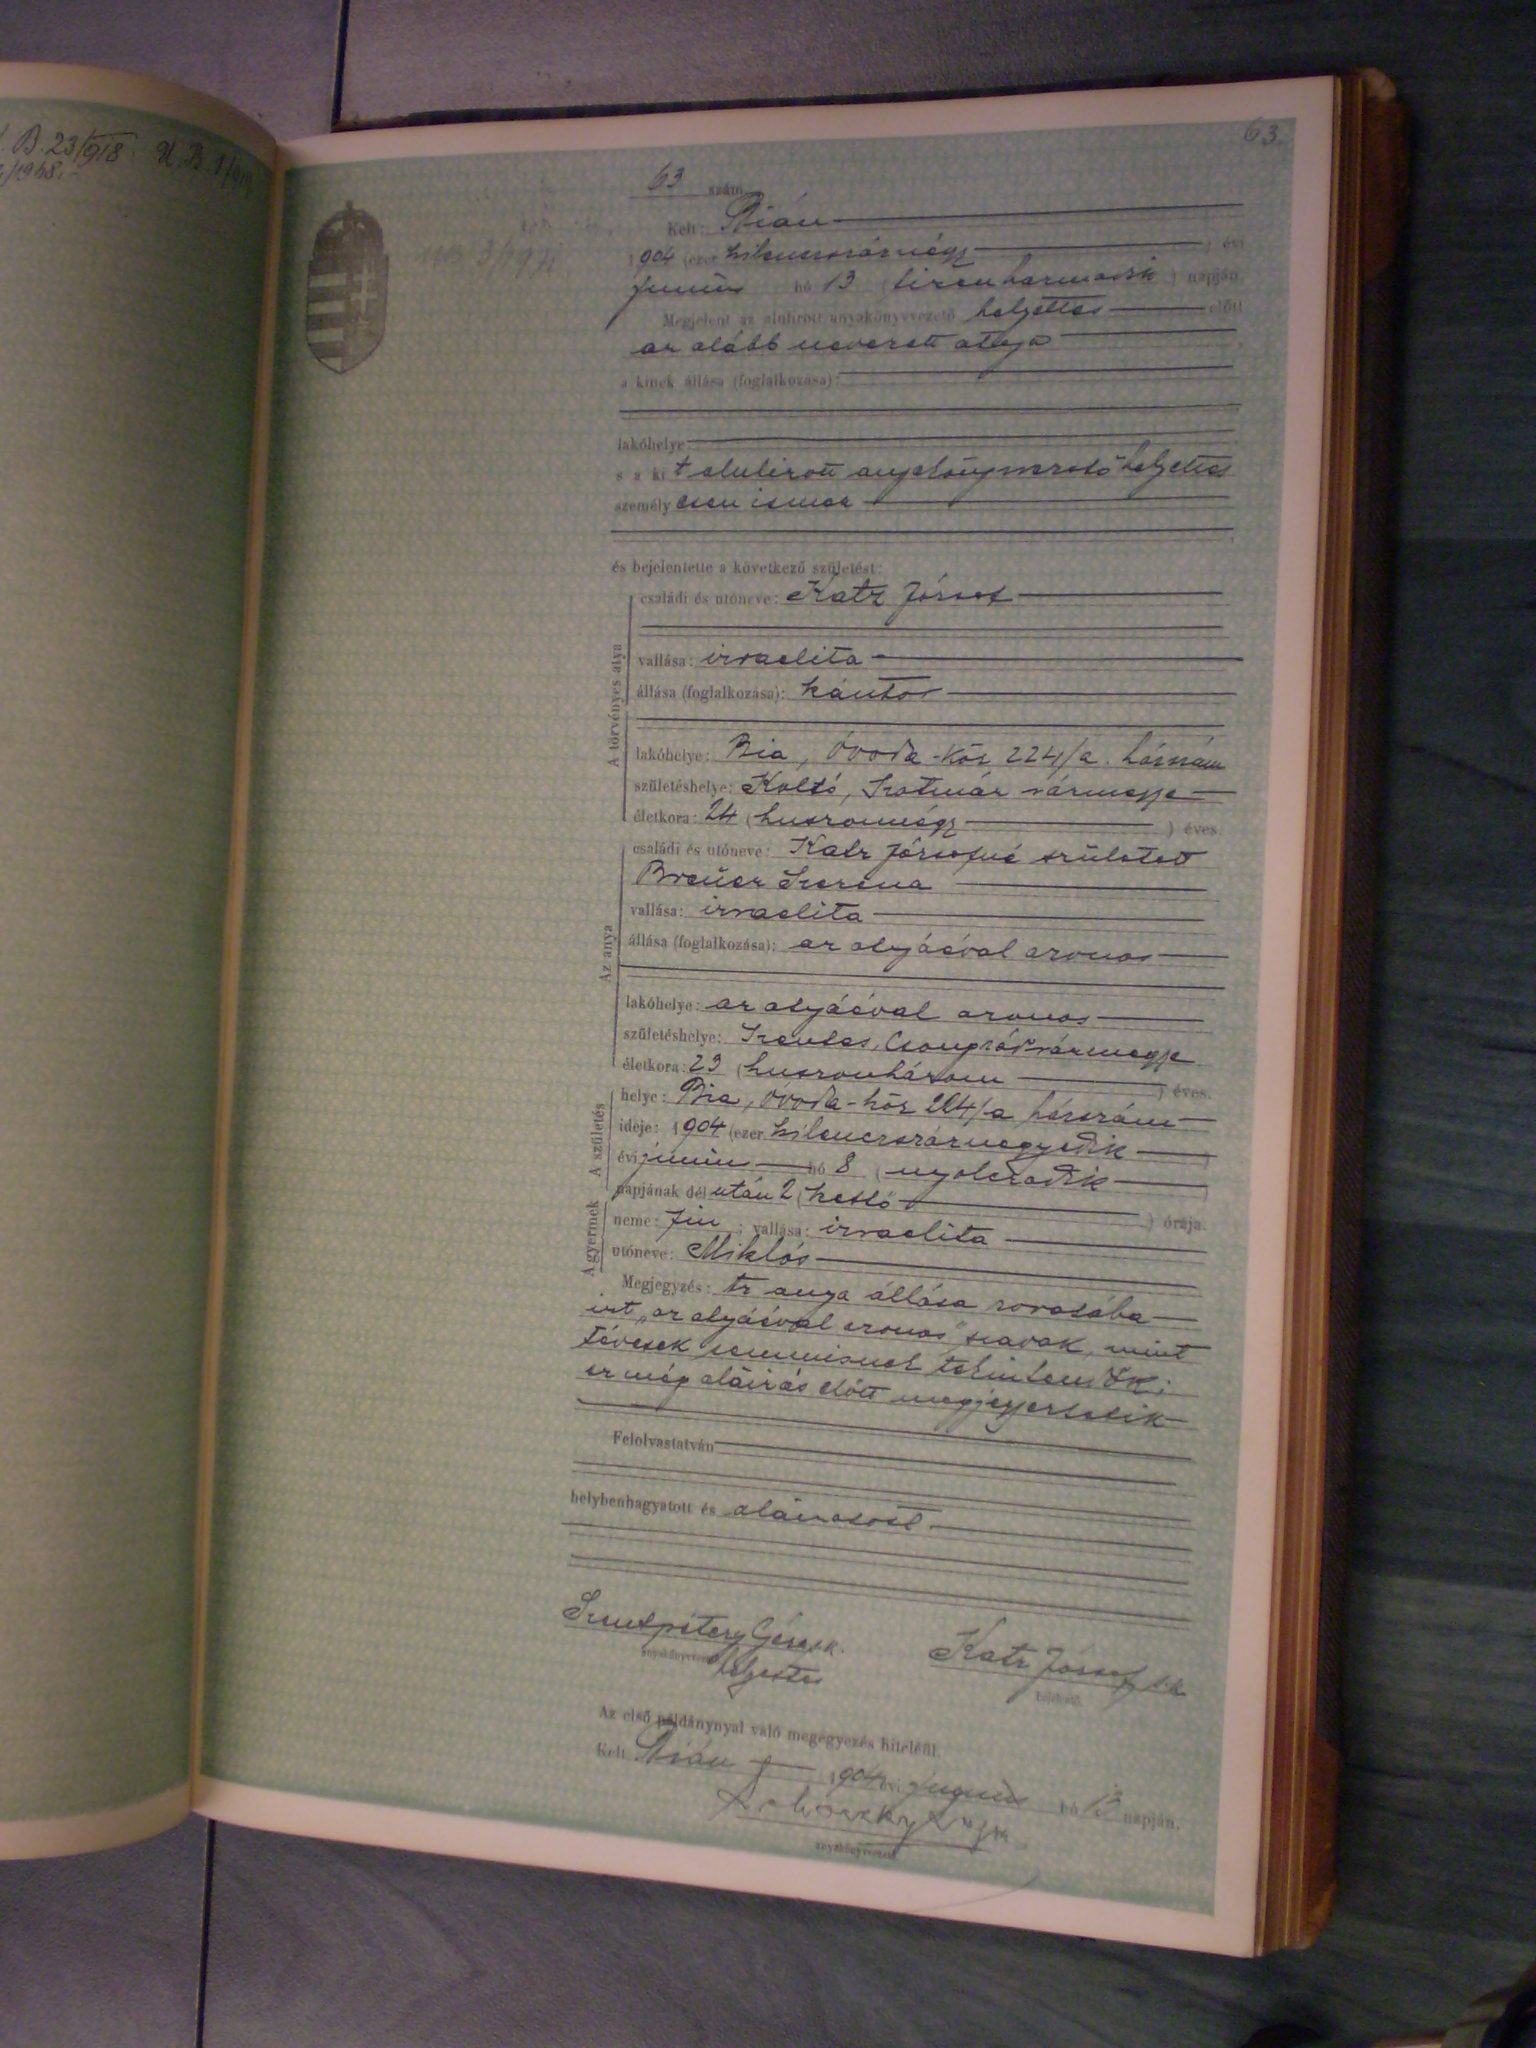 B. 23/918 U. B. 1/919
/1948.
63.
63 szám.
Kelt: Bián
1904 (ezer kilencszáznégy) évi
június hó 13 (tizenharmadik) napján.
Megjelent az alulirott anyakönyvvezető helyettes előtt
az alább nevezett atya
a kinek állása (foglalkozása):
lakóhelye
s a kit alulirott anyakönyvvezető helyettes
személyesen ismer
és bejelentette a következő születést:
A törvényes atya
családi és utóneve: Katz József
vallása: izraelita
állása (foglalkozása): kántor
lakóhelye: Bia, Óvoda-köz 224/a. házszám
születéshelye: Koltó, Szatmár vármegye
életkora: 24 (huszonnégy) éves.
Az anya
családi és utóneve: Katz Józsefné született
Breüer Szeréna
vallása: izraelita
állása (foglalkozása): az atyáéval azonos
lakóhelye: az atyáéval azonos
születéshelye: Szentes, Csongrád vármegye
életkora: 23 (huszonhárom) éves.
A születés
helye: Bia, Óvoda-köz 224/a házszám
ideje: 1904 (ezer kilencszáznegyedik)
évi június hó 8 (nyolczadik)
napjának dél után 2 (kettő) órája.
A gyermek
neme: fiu; vallása: izraelita
utóneve: Miklós
Megjegyzés: Az anya állása rovatába
irt „az atyáéval azonos" szavak, mint
tévesek semmisnek tekintendők;
ez még aláirás előtt megjegyeztetik
Felolvastatván
helybenhagyatott és aláiratott
Szentpétery Géza s.k. Katz József s.k.
anyakönyvvezető helyettes bejelentő
Az első példánynyal való megegyezés hiteléül.
Kelt Bián 1904 évi junius hó 13 napján.
anyakönyvvezető